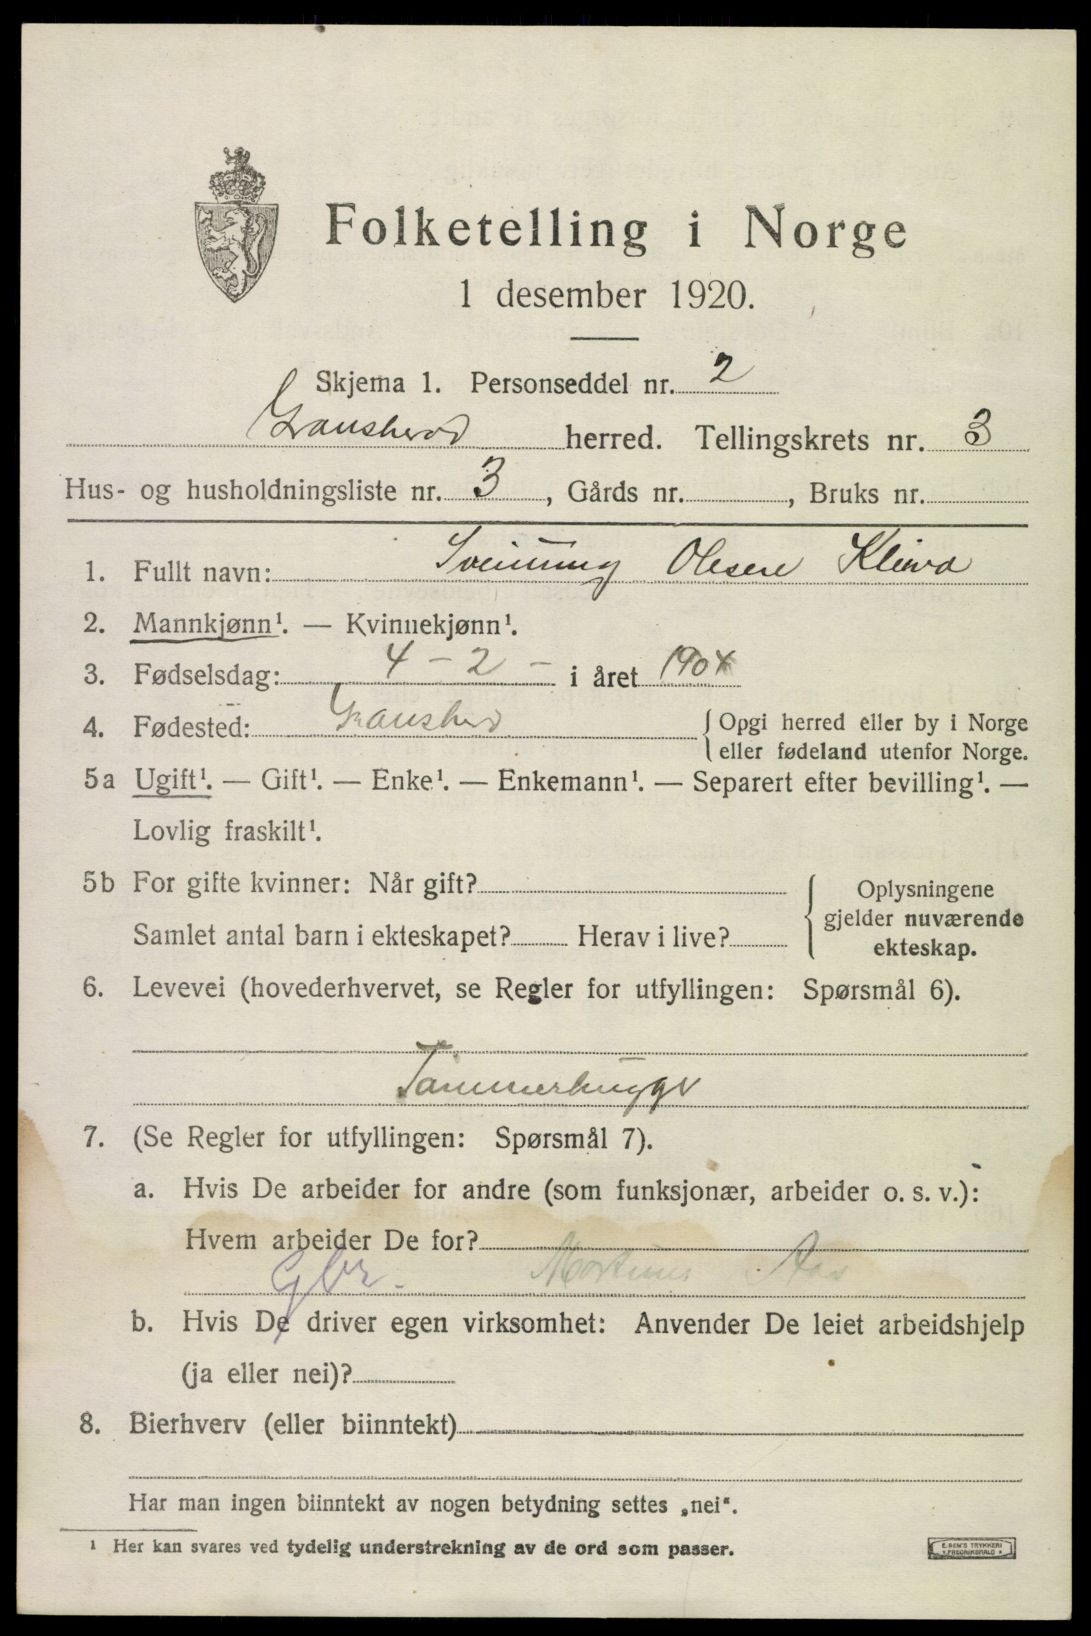 Folketelling i Norge
1 desember 1920.
Skjema 1. Personseddel nr. 2
Gransherad herred. Tellingskrets nr. 3
Hus- og husholdningsliste nr. 3, Gårds nr. , Bruks nr.
1. Fullt navn: Sveinung Olesen Kleiva
2. Mannkjønn¹. — Kvinnekjønn¹.
3. Fødselsdag: 4 - 2 - i året 1904
4. Fødested: Gransherd { Opgi herred eller by i Norge
eller fødeland utenfor Norge.
5a Ugift¹. — Gift¹. — Enke¹. — Enkemann¹. — Separert efter bevilling¹. —
Lovlig fraskilt¹.
5b For gifte kvinner: Når gift? { Oplysningene
gjelder nuværende
Samlet antal barn i ekteskapet? Herav i live? ekteskap.
6. Levevei (hovederhvervet, se Regler for utfyllingen: Spørsmål 6).
Tømmerhugger
7. (Se Regler for utfyllingen: Spørsmål 7).
a. Hvis De arbeider for andre (som funksjonær, arbeider o. s. v.):
Hvem arbeider De for?
Mortinus Aas
b. Hvis De driver egen virksomhet: Anvender De leiet arbeidshjelp
(ja eller nei)?
8. Bierhverv (eller biinntekt)
Har man ingen biinntekt av nogen betydning settes „nei“.
¹ Her kan svares ved tydelig understrekning av de ord som passer.
E. SEM'S TRYKKERI
FREDRIKSHALD